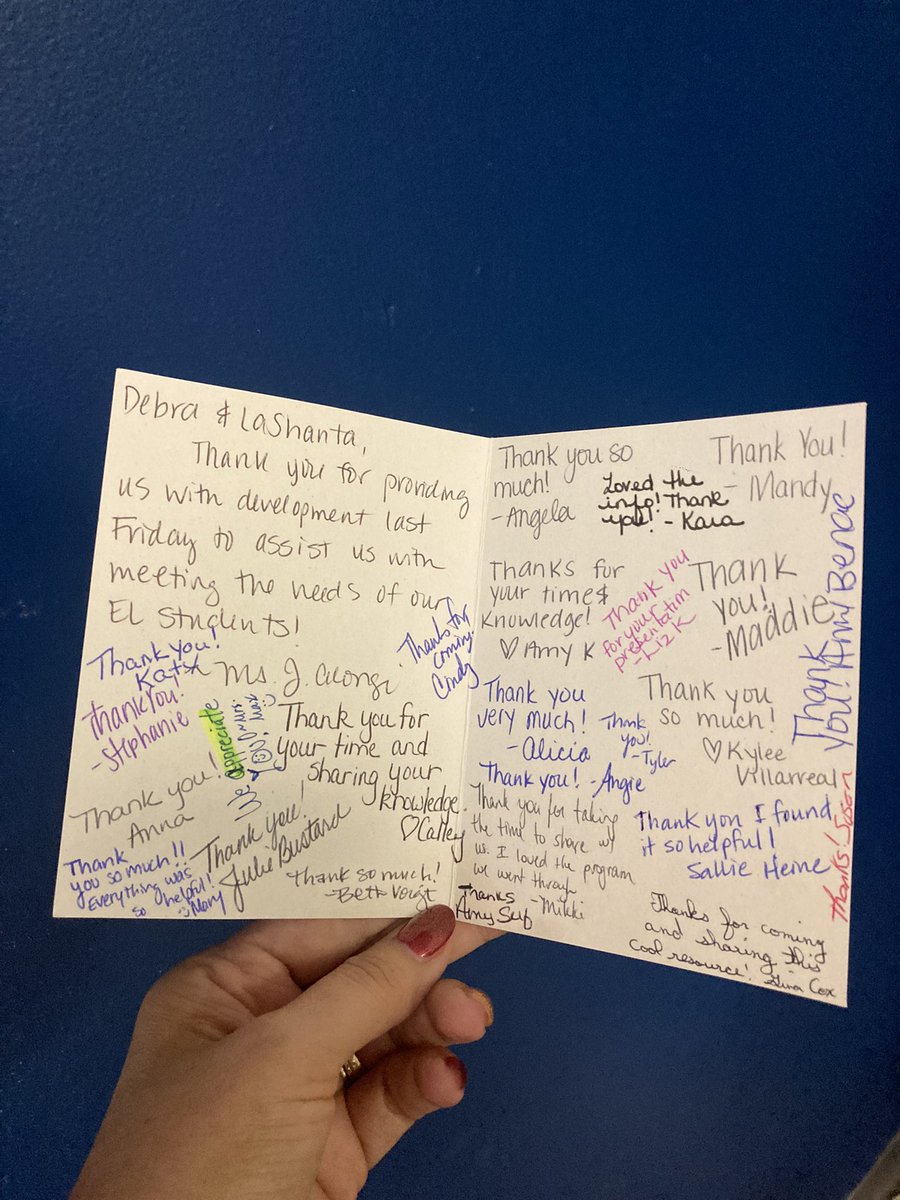 Debra & LaShanta,
Thank you for providing
us with development last
Friday to assist us with
meeting the needs of our
EL Students!
Ms. J.
Thank you!
Kat
Thank You!
- Stephanie
We appreciate
you!
Thanks for
coming.
Cindy
Thank you for
your time and
sharing your
knowledge.
♡Calley
Thank you!
Anna
Thank you!
Julie Bustard
Thank
you so much!!
Everything was
so helpful!
Mary
Thank so much!
- Beth Voigt
Thank you so
much!
- Angela
Loved the
info! Thank
you! - Kara
Thank You!
- Mandy
Thanks for
your time &
knowledge!
♡ Amy K
Thank you
for your
presentation
- Liz K
Thank
you!
- Maddie
Thank
you! Ann Benoe
Thank you
very much!
- Alicia
Thank
you!
- Tyler
Thank you
so much!
♡ Kylee
Villarreal
Thank you! - Angie
Thank you for taking
the time to share w/
us. I loved the program
we went through
- Mikki
Thank you I found
it so helpful!
Sallie Heine
Thanks! Susan
Thanks
Amy
Thanks for coming
and sharing this
cool resource! Gina Cox